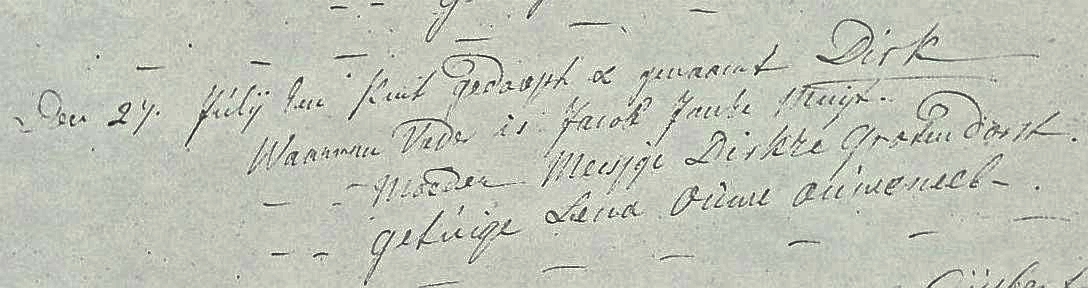 Den 27. Julij Een Kint Gedoopt & genaamt Dirk
Waarvan Vader is Jacob Janse Struijk.
- - Moeder Mensje Dirkze Grotendorst.
- - getuige Lena